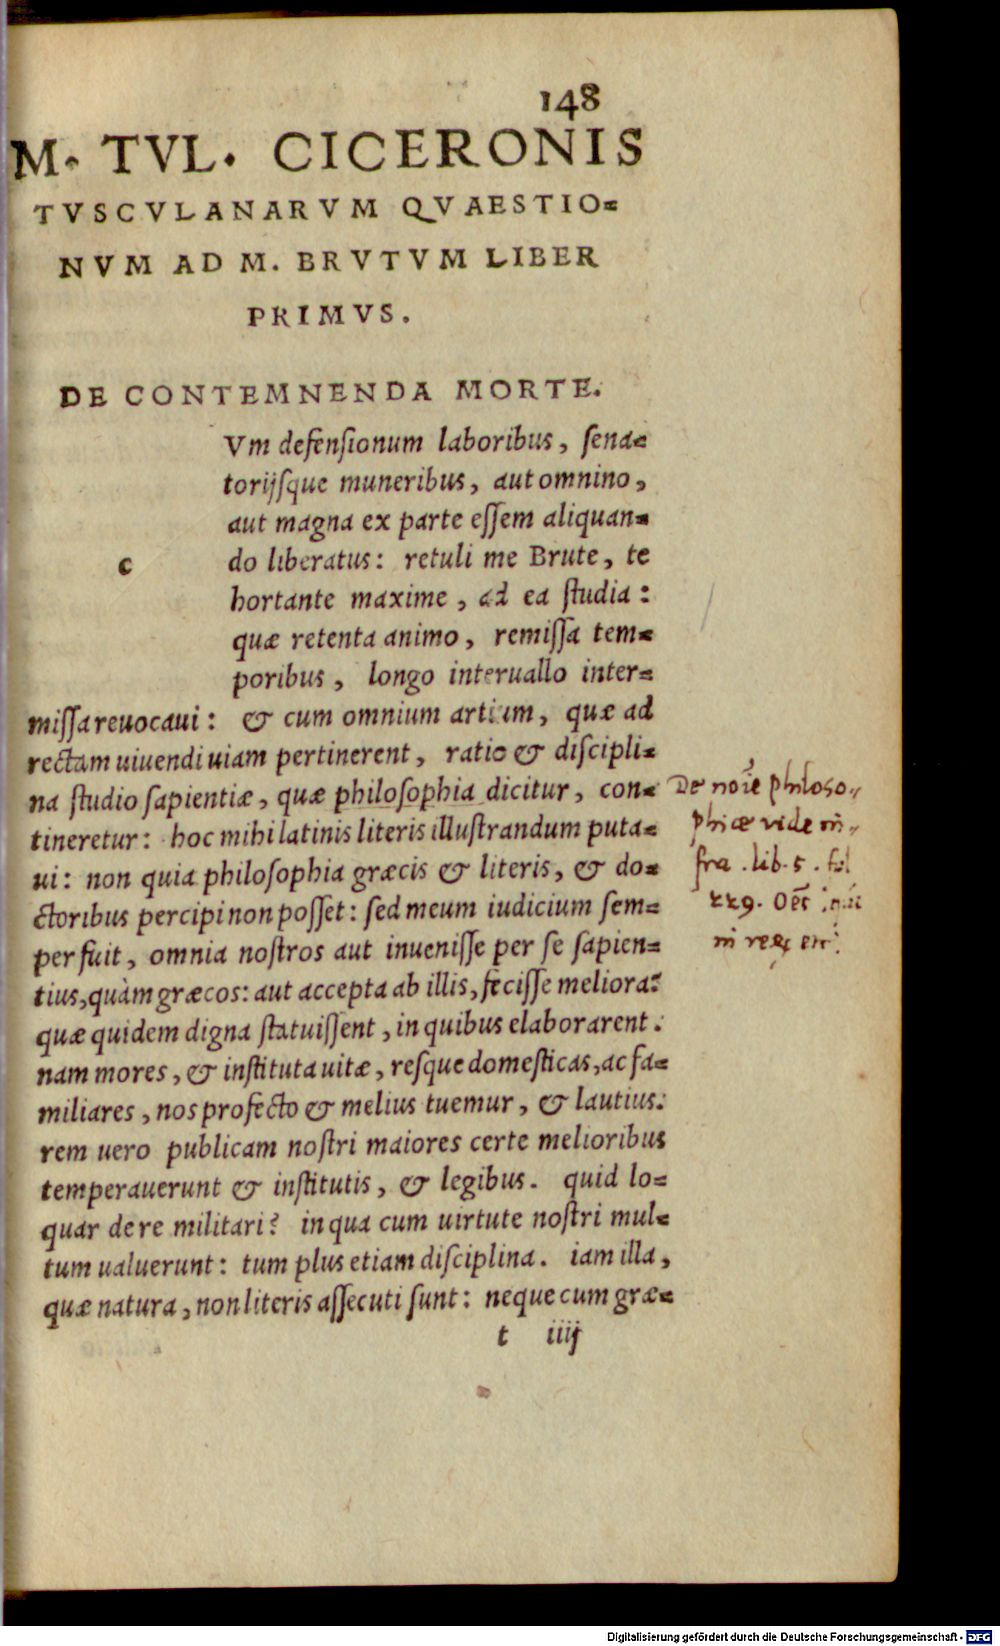 148
M. TVL. CICERONIS
TVSCVLANARVM QVAESTIO=
NVM AD M. BRVTVM LIBER
PRIMVS.
DE CONTEMNENDA MORTE.
c
Vm defenſionum laboribus, ſena=
torijſque muneribus, aut omnino,
aut magna ex parte eſſem aliquan=
do liberatus: retuli me Brute, te
hortante maxime, ad ea ſtudia:
quæ retenta animo, remiſſa tem=
poribus, longo interuallo inter=
miſſa reuocaui: & cum omnium artium, quæ ad
rectam uiuendi uiam pertinerent, ratio & diſcipli=
na ſtudio ſapientiæ, quæ philoſophia dicitur, con=
tineretur: hoc mihi latinis literis illuſtrandum puta=
ui: non quia philoſophia græcis & literis, & do=
ctoribus percipi non poſſet: ſed meum iudicium ſem=
per fuit, omnia noſtros aut inueniſſe per ſe ſapien=
tius, quàm græcos: aut accepta ab illis, feciſſe meliora:
quæ quidem digna ſtatuiſſent, in quibus elaborarent.
nam mores, & inſtituta uitæ, reſque domeſticas, ac fa=
miliares, nos profecto & melius tuemur, & lautius:
rem uero publicam noſtri maiores certe melioribus
temperauerunt & inſtitutis, & legibus. quid lo=
quar de re militari? in qua cum uirtute noſtri mul=
tum ualuerunt: tum plus etiam diſciplina. iam illa,
quæ natura, non literis aſſecuti ſunt: neque cum græ=
t iiij
De philoso
phiæ vide in
fra . lib. 5 .
229.
Digitalisierung gefördert durch die Deutsche Forschungsgemeinschaft - DFG